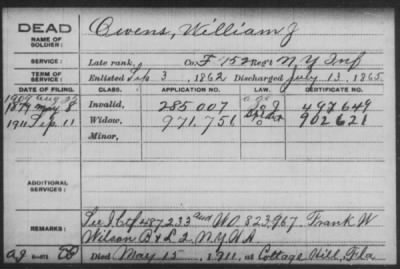 DEAD
NAME OF SOLDIER:
Owens, William J
SERVICE:
Late rank, Co. F 152 Reg't N.Y. Inf
TERM OF SERVICE:
Enlisted Sep 3, 1862 Discharged July 13, 1865
DATE OF FILING. CLASS. APPLICATION NO. LAW. CERTIFICATE NO.
1879 May 8 Invalid, 285007 497649
1911 Sep. 11 Widow, 971.751 902621
Minor,
ADDITIONAL SERVICES:
REMARKS:
See I Ctf 487233 and WO. 823,967. Frank W
Wilson B & L 2. N.Y.H.A.
Died May 15, 1911, at Cottage Hill, Fla